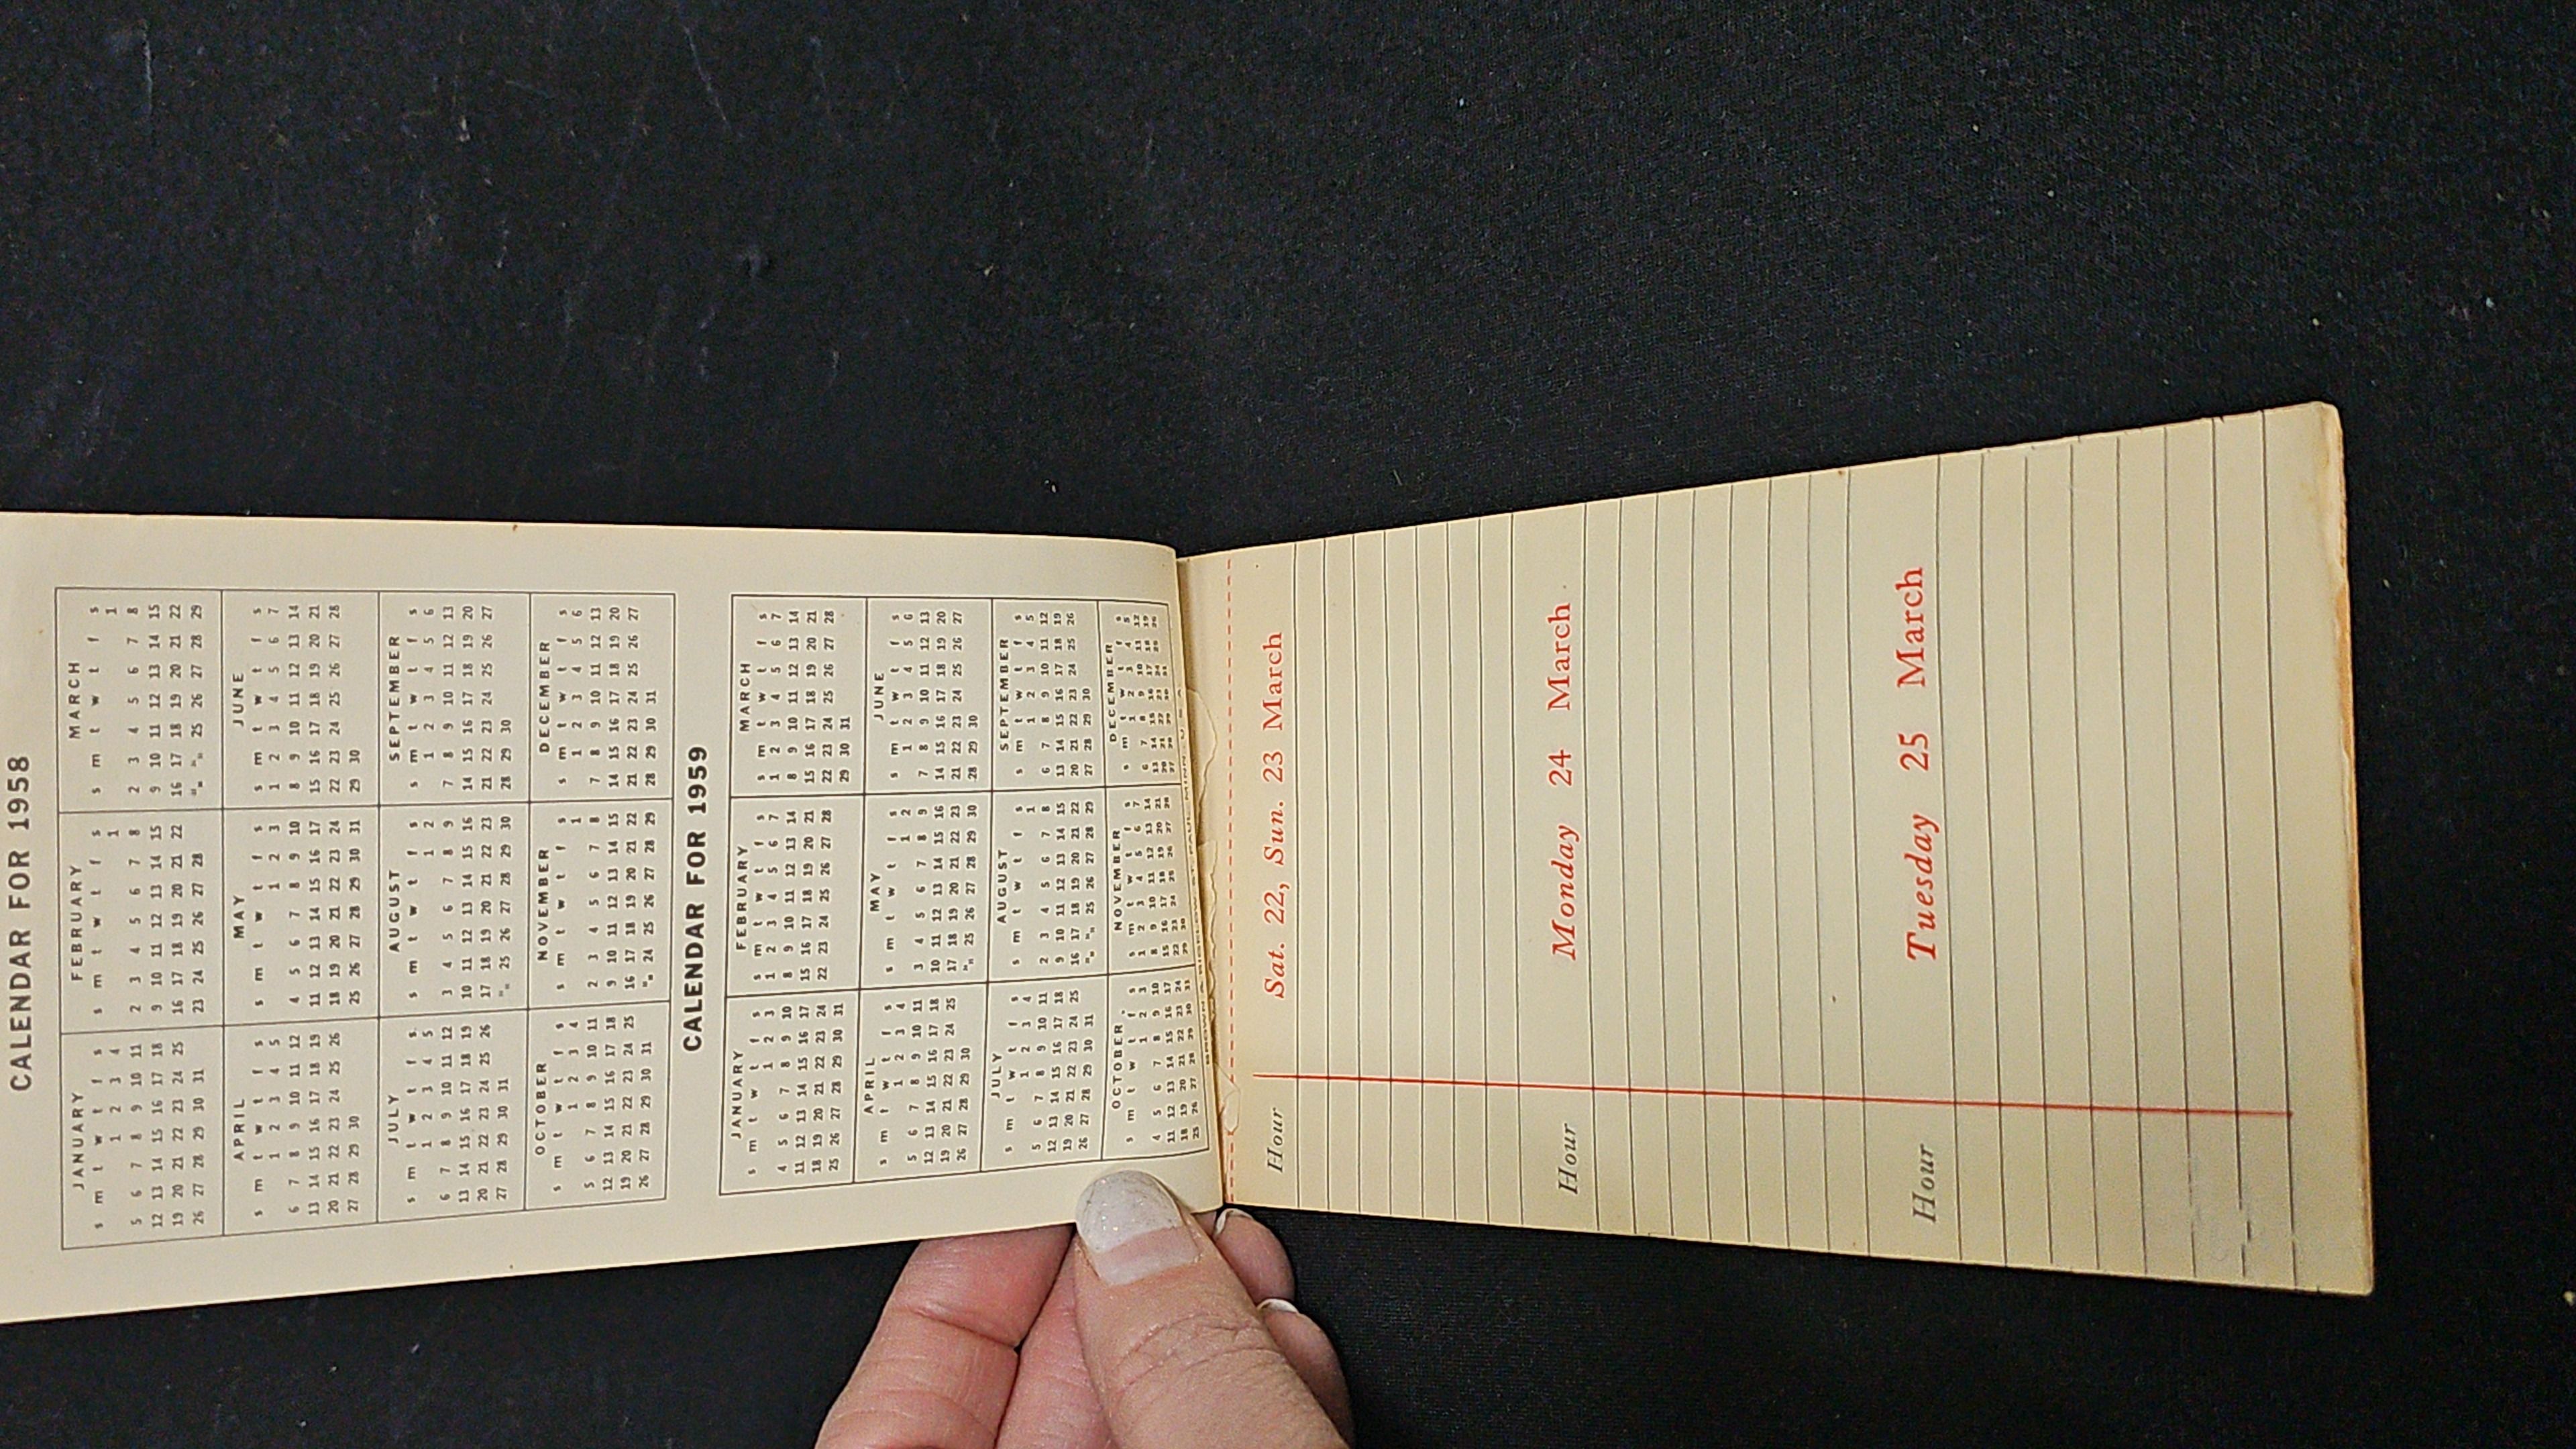 CALENDAR FOR 1958
JANUARY
s m t w t f s
1 2 3 4
5 6 7 8 9 10 11
12 13 14 15 16 17 18
19 20 21 22 23 24 25
26 27 28 29 30 31
FEBRUARY
s m t w t f s
1
2 3 4 5 6 7 8
9 10 11 12 13 14 15
16 17 18 19 20 21 22
23 24 25 26 27 28
MARCH
s m t w t f s
1
2 3 4 5 6 7 8
9 10 11 12 13 14 15
16 17 18 19 20 21 22
25 26 27 28 29
APRIL
s m t w t f s
1 2 3 4 5
6 7 8 9 10 11 12
13 14 15 16 17 18 19
20 21 22 23 24 25 26
27 28 29 30
MAY
s m t w t f s
1 2 3
4 5 6 7 8 9 10
11 12 13 14 15 16 17
18 19 20 21 22 23 24
25 26 27 28 29 30 31
JUNE
s m t w t f s
1 2 3 4 5 6 7
8 9 10 11 12 13 14
15 16 17 18 19 20 21
22 23 24 25 26 27 28
29 30
JULY
s m t w t f s
1 2 3 4 5
6 7 8 9 10 11 12
13 14 15 16 17 18 19
20 21 22 23 24 25 26
27 28 29 30 31
AUGUST
s m t w t f s
1 2
3 4 5 6 7 8 9
10 11 12 13 14 15 16
17 18 19 20 21 22 23
25 26 27 28 29 30
SEPTEMBER
s m t w t f s
1 2 3 4 5 6
7 8 9 10 11 12 13
14 15 16 17 18 19 20
21 22 23 24 25 26 27
28 29 30
OCTOBER
s m t w t f s
1 2 3 4
5 6 7 8 9 10 11
12 13 14 15 16 17 18
19 20 21 22 23 24 25
26 27 28 29 30 31
NOVEMBER
s m t w t f s
1
2 3 4 5 6 7 8
9 10 11 12 13 14 15
16 17 18 19 20 21 22
24 25 26 27 28 29
DECEMBER
s m t w t f s
1 2 3 4 5 6
7 8 9 10 11 12 13
14 15 16 17 18 19 20
21 22 23 24 25 26 27
28 29 30 31
CALENDAR FOR 1959
JANUARY
s m t w t f s
1 2 3
4 5 6 7 8 9 10
11 12 13 14 15 16 17
18 19 20 21 22 23 24
25 26 27 28 29 30 31
FEBRUARY
s m t w t f s
1 2 3 4 5 6 7
8 9 10 11 12 13 14
15 16 17 18 19 20 21
22 23 24 25 26 27 28
MARCH
s m t w t f s
1 2 3 4 5 6 7
8 9 10 11 12 13 14
15 16 17 18 19 20 21
22 23 24 25 26 27 28
29 30 31
APRIL
s m t w t f s
1 2 3 4
5 6 7 8 9 10 11
12 13 14 15 16 17 18
19 20 21 22 23 24 25
26 27 28 29 30
MAY
s m t w t f s
1 2
3 4 5 6 7 8 9
10 11 12 13 14 15 16
17 18 19 20 21 22 23
25 26 27 28 29 30
JUNE
s m t w t f s
1 2 3 4 5 6
7 8 9 10 11 12 13
14 15 16 17 18 19 20
21 22 23 24 25 26 27
28 29 30
JULY
s m t w t f s
1 2 3 4
5 6 7 8 9 10 11
12 13 14 15 16 17 18
19 20 21 22 23 24 25
26 27 28 29 30 31
AUGUST
s m t w t f s
1
2 3 4 5 6 7 8
9 10 11 12 13 14 15
16 17 18 19 20 21 22
25 26 27 28 29
SEPTEMBER
s m t w t f s
1 2 3 4 5
6 7 8 9 10 11 12
13 14 15 16 17 18 19
20 21 22 23 24 25 26
27 28 29 30
OCTOBER
s m t w t f s
1 2 3
4 5 6 7 8 9 10
11 12 13 14 15 16 17
18 19 20 21 22 23 24
25 26 27 28 29 30 31
NOVEMBER
s m t w t f s
1 2 3 4 5 6 7
8 9 10 11 12 13 14
15 16 17 18 19 20 21
22 23 24 25 26 27 28
29 30
DECEMBER
s m t w t f s
1 2 3 4 5
6 7 8 9 10 11 12
13 14 15 16 17 18 19
20 21 22 23 24 25 26
27 28 29 30 31
BROWN &
Hour Sat. 22, Sun. 23 March
Hour Monday 24 March
Hour Tuesday 25 March